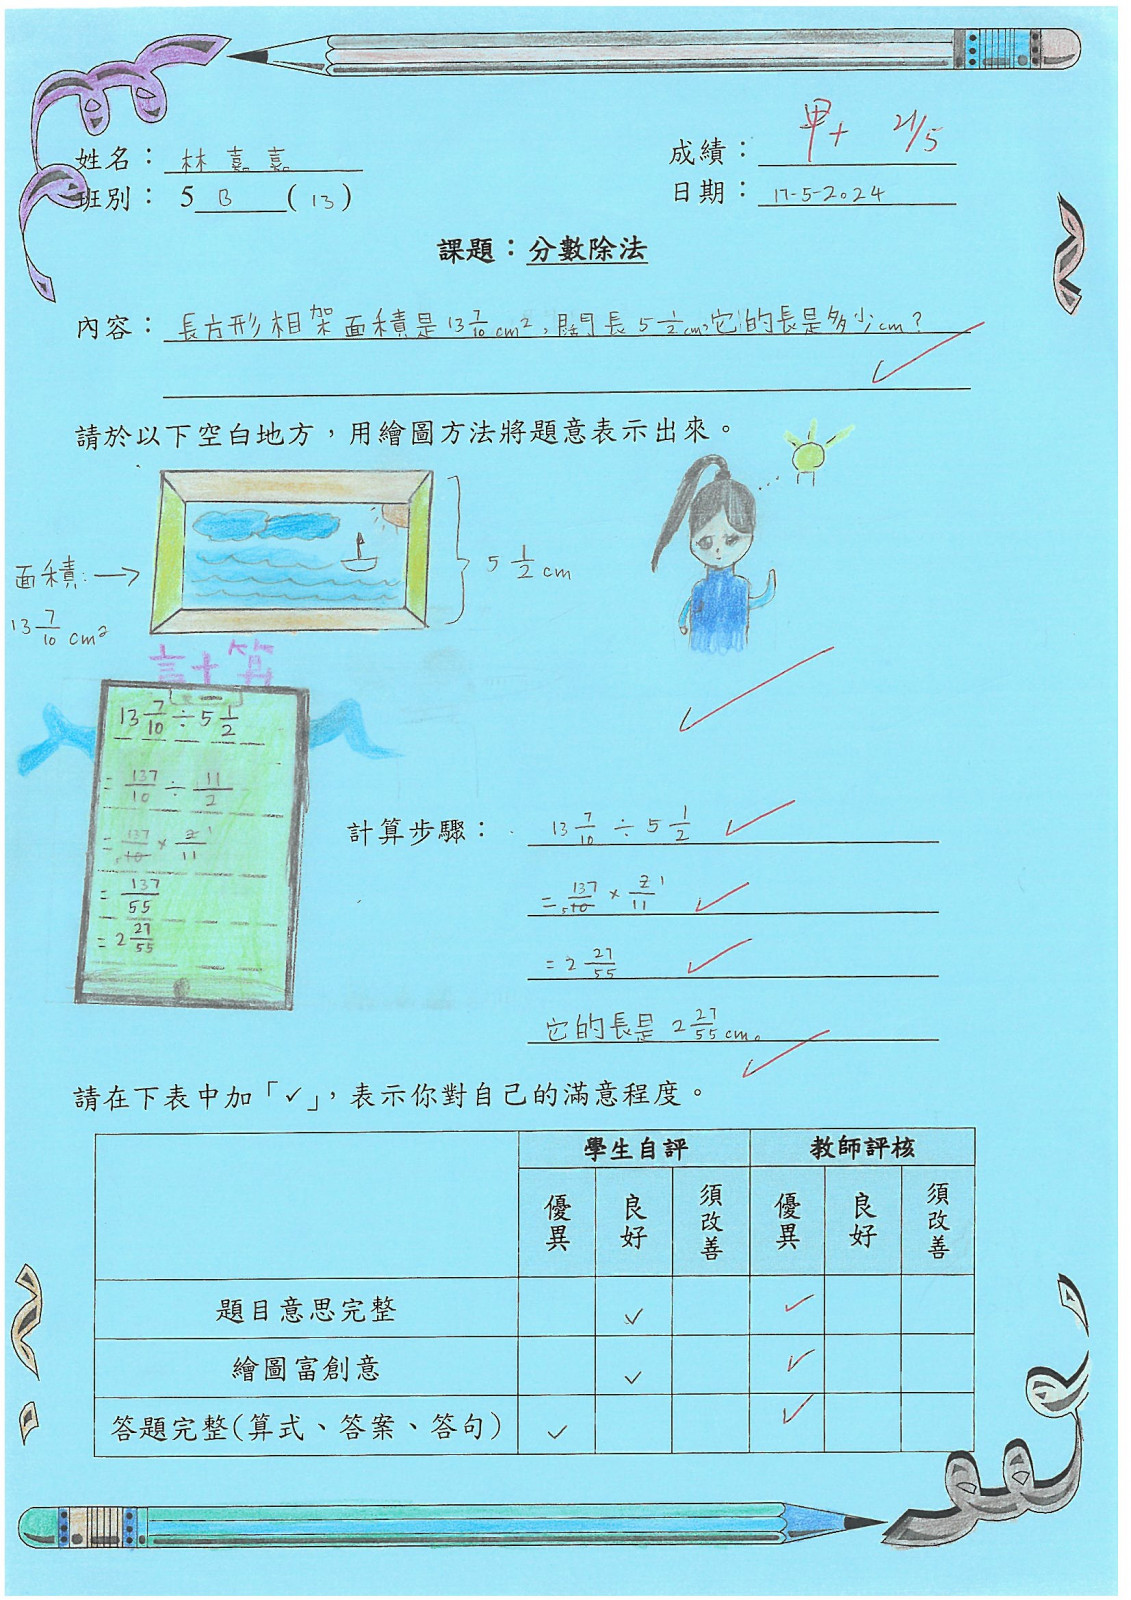 姓名：林嘉嘉
成績：甲+ 21/5
班別：5B(13)
日期：17-5-2024
課題：分數除法
內容：長方形相架面積是13 7/10 cm²，闊長5 1/2 cm，它的長是多少cm？
請於以下空白地方，用繪圖方法將題意表示出來。
面積：→
13 7/10 cm²
5 1/2 cm
計算
13 7/10 ÷ 5 1/2
= 137/10 ÷ 11/2
= 137/10 5 × 2/11 1
= 137/55
= 2 27/55
計算步驟：
13 7/10 ÷ 5 1/2
= 137/10 5 × 2/11 1
= 2 27/55
它的長是2 27/55 cm。
請在下表中加「✓」，表示你對自己的滿意程度。
學生自評 教師評核
優異 良好 須改善 優異 良好 須改善
題目意思完整 ✓ ✓
繪圖富創意 ✓ ✓
答題完整(算式、答案、答句) ✓ ✓